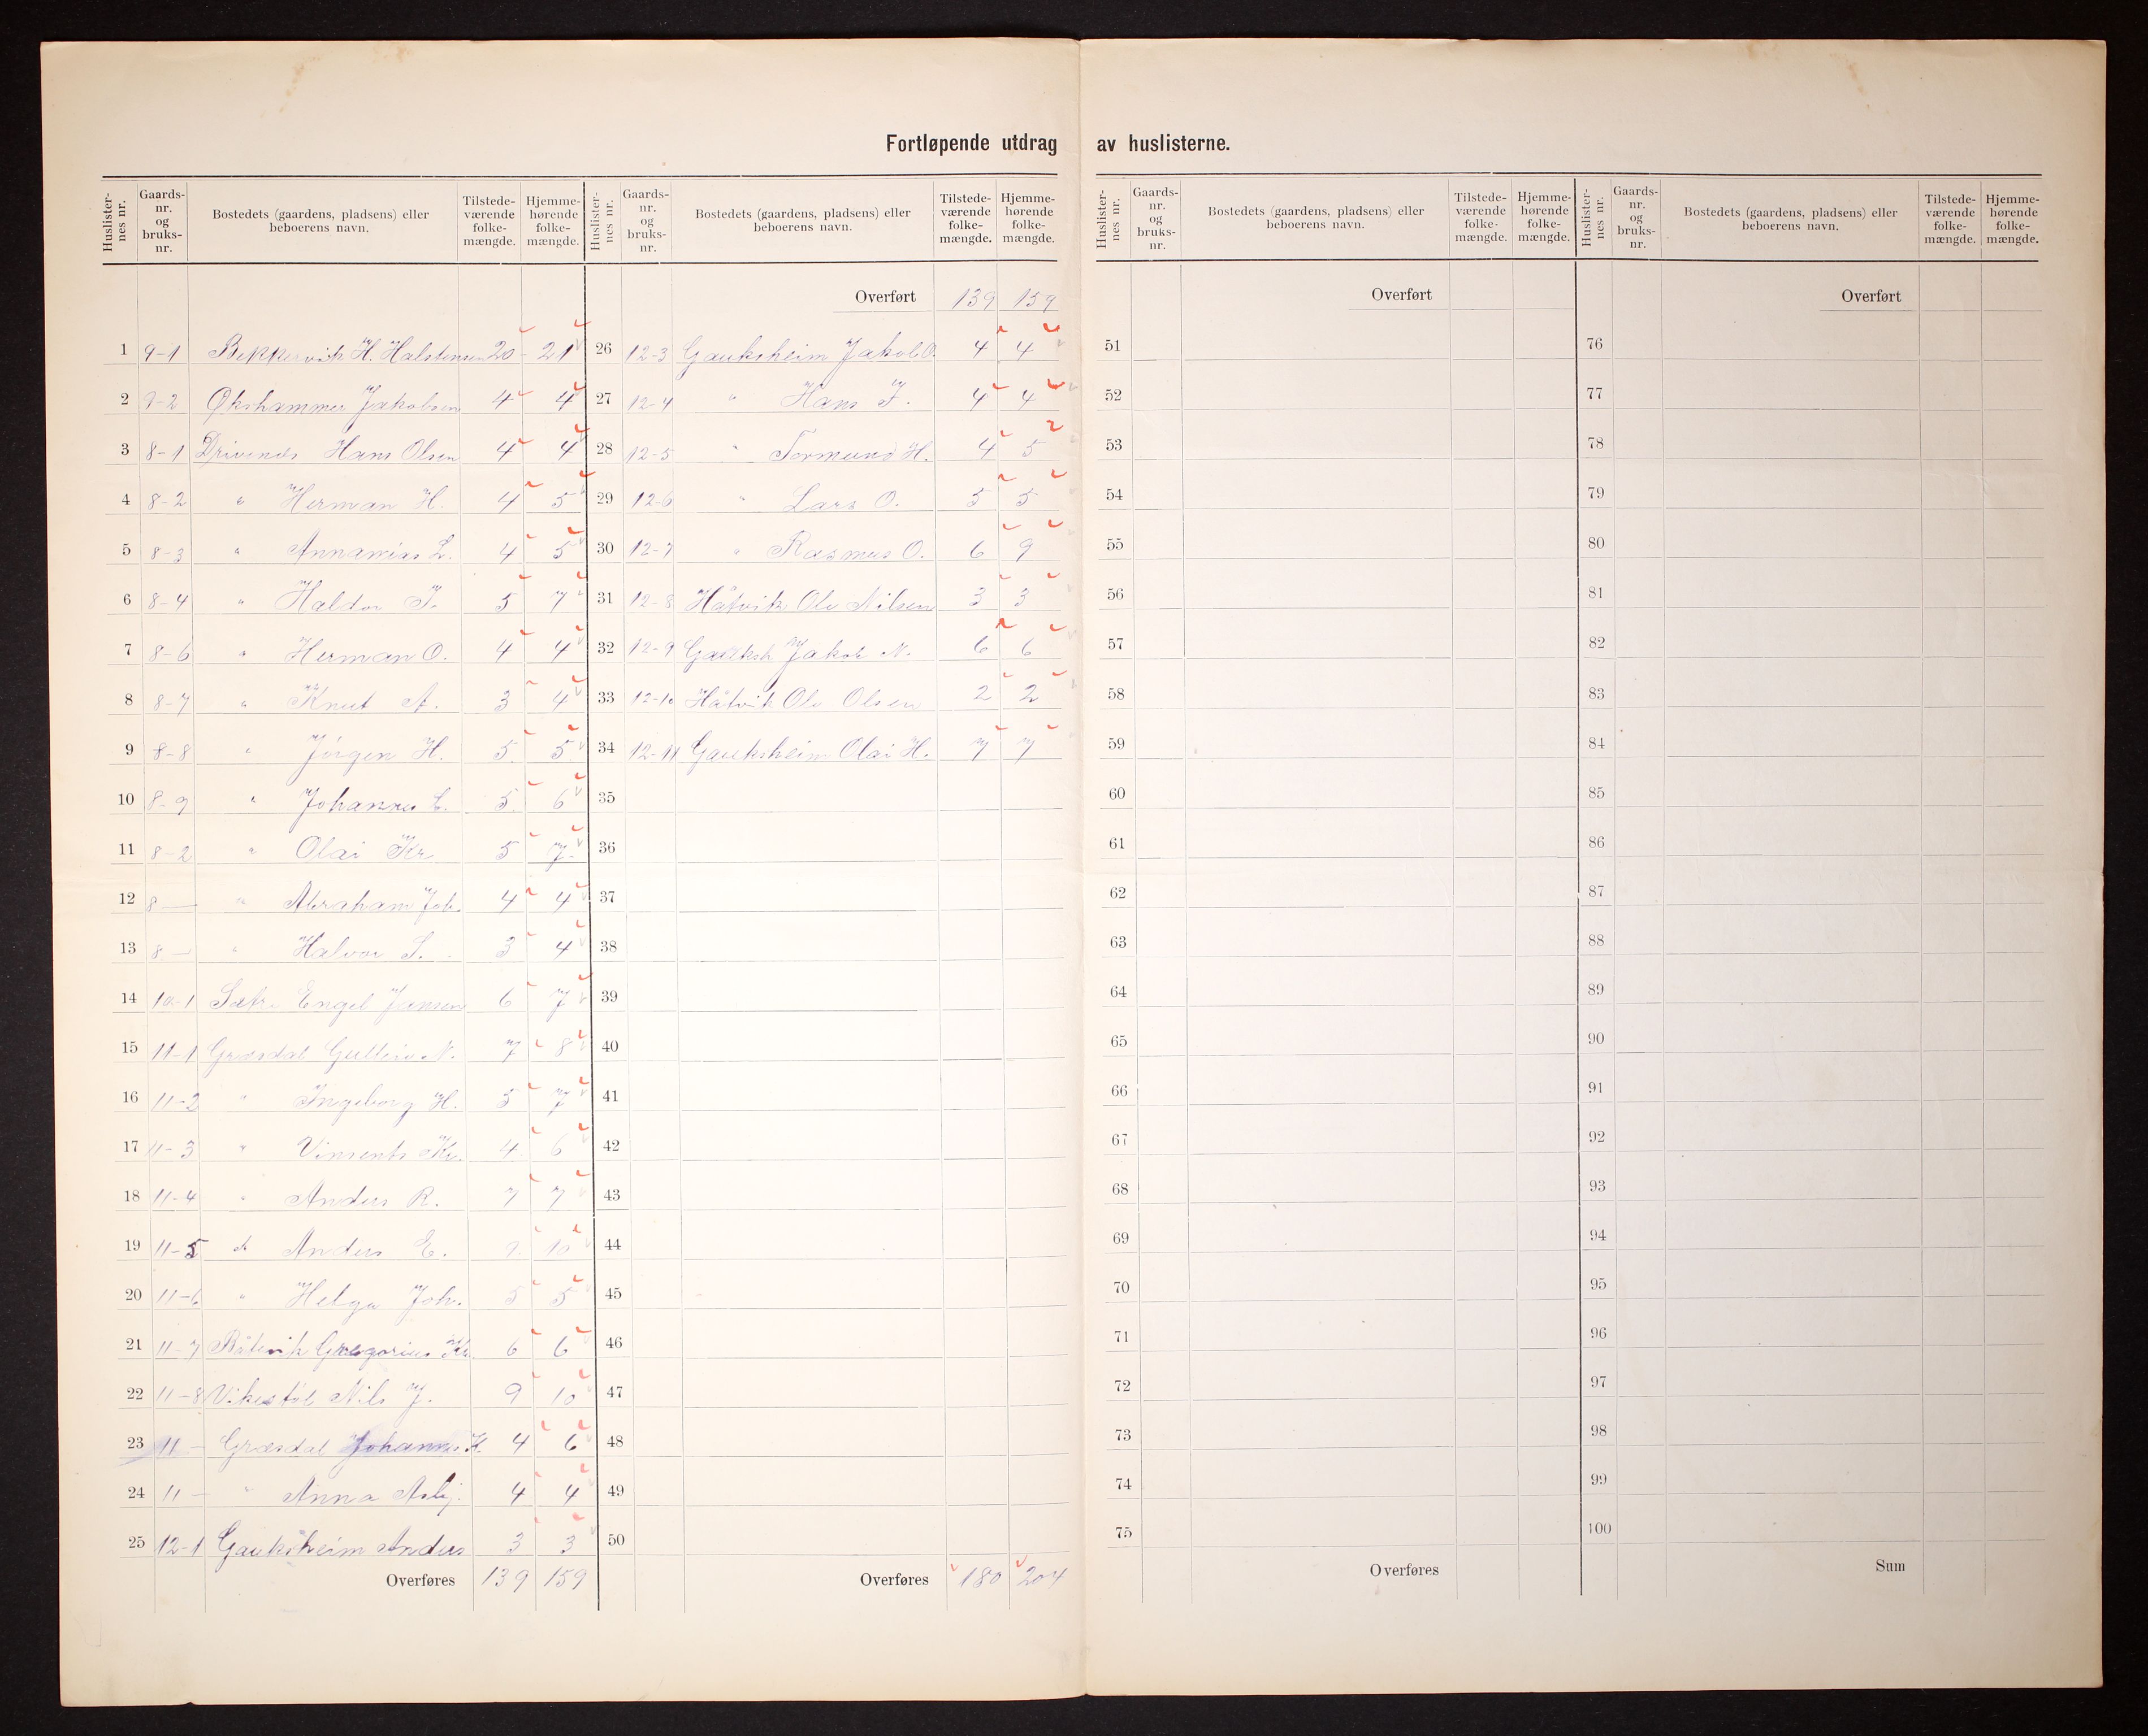 Fortløpende utdrag av huslisterne.
Huslisternes nr. Gaards-nr. og bruks-nr. Bostedets (gaardens, pladsens) eller beboerens navn. Tilstedeværende folkemængde. Hjemmehørende folkemængde.
1 9-1 Bekkervik H. Halstensen 20 21
2 9-2 Økshammer Jakobsen 4 4
3 8-1 Drivenes Hans Olsen 4 4
4 8-2 " Herman H. 4 5
5 8-3 " Annanias L. 4 5
6 8-4 " Haldor J. 5 7
7 8-6 " Herman O. 4 4
8 8-7 " Knut A. 3 4
9 8-8 " Jörgen H. 5 5
10 8-9 " Johannes L. 5 6
11 8-2 " Olai Kr. 5 7
12 8 — " Abraham Joh. 4 4
13 8 — " Halvor L. 3 4
14 10-1 Sætre Engel Jansen 6 7
15 11-1 Græsdal Gulleiv N. 7 8
16 11-2 " Ingeborg H. 5 7
17 11-3 " Vinsents Kr. 4 6
18 11-4 " Anders R. 7 7
19 11-5 " Anders E. 9 10
20 11-6 " Helga Joh. 5 5
21 11-7 Båtevik Gregorius Kr. 6 6
22 11-8 Vikestöl Nils J. 9 10
23 11 — Græsdal Johannes K. 4 6
24 11 — " Anna Asbj. 4 4
25 12-1 Gauksheim Anders 3 3
Overføres 139 159
Huslisternes nr. Gaards-nr. og bruks-nr. Bostedets (gaardens, pladsens) eller beboerens navn. Tilstedeværende folkemængde. Hjemmehørende folkemængde.
Overført 139 159
26 12-3 Gauksheim Jakob O. 4 4
27 12-4 " Hans J. 4 4
28 12-5 " Tormund H. 4 5
29 12-6 " Lars O. 5 5
30 12-7 " Rasmus O. 6 9
31 12-8 Håtvik Ole Nilsen 3 3
32 12-9 Gauksh Jakob N. 6 6
33 12-10 Håtvik Ole Olsen 2 2
34 12-11 Gauksheim Olai H. 7 7
35
36
37
38
39
40
41
42
43
44
45
46
47
48
49
50
Overføres 180 204
Huslisternes nr. Gaards-nr. og bruks-nr. Bostedets (gaardens, pladsens) eller beboerens navn. Tilstedeværende folkemængde. Hjemmehørende folkemængde.
Overført
51
52
53
54
55
56
57
58
59
60
61
62
63
64
65
66
67
68
69
70
71
72
73
74
75
Overføres
Huslisternes nr. Gaards-nr. og bruks-nr. Bostedets (gaardens, pladsens) eller beboerens navn. Tilstedeværende folkemængde. Hjemmehørende folkemængde.
Overført
76
77
78
79
80
81
82
83
84
85
86
87
88
89
90
91
92
93
94
95
96
97
98
99
100
Sum